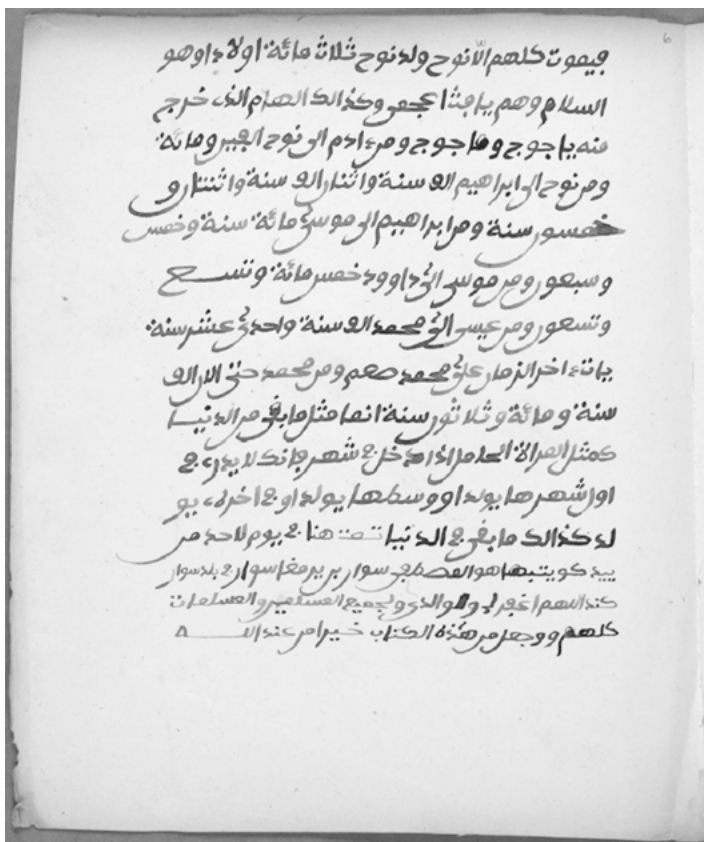 6
فيموت كلهم الّا نوح ولد نوح ثلاث مائة اولاد او هو
السلام وهم يافثا عجمي وكذالك الهام الذي خرج
منه ياجوج وماجوج ومن ءادم الى نوح الفين ومائة
ومن نوح الى ابراهيم الف سنة واثنان الف سنة واثنتان و
خمسون سنة ومن ابراهيم الى موسى مائة سنة وخمس
وسبعون ومن موسى الى داوود خمس مائة وتسع
وتسعون ومن عيسى الى محمد الف سنة واحدى عشر سنة
يات ءاخر الزمان على محمد صعم ومن محمد حتى الان الف
سنة ومائة وثلاثون سنة انما مثل ما بقي من الدنيا
كمثل المراة الحامل اذا دخل في شهر فانك لا يدري في
اول شهرها يولد او وسطها يولد او في اخره يو
لد كذالك ما بقي في الدنيا تمت هنا في يوم لاحد من
ييد كويتبها هو المصطفى سوار بن يرمغا سوار في بلد سوار
كند اللهم اغفر لي ولوالدي ولجميع المسلمين والمسلمات
كلهم ووجعل من هذه الكتاب خيرا من عند الله